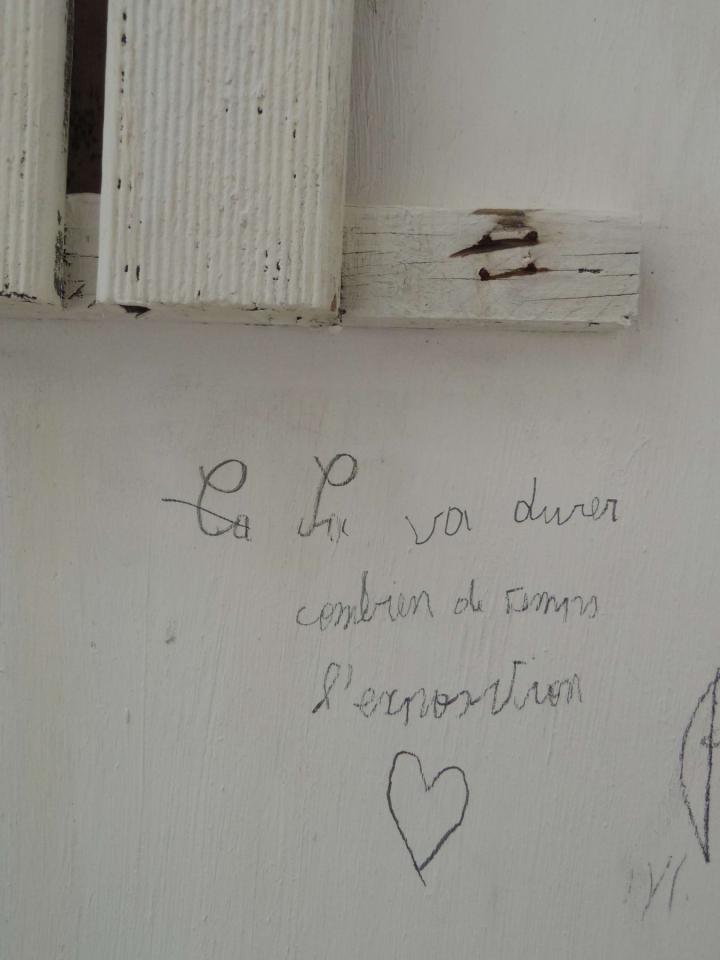 va durer
combien de temps
l'exposition